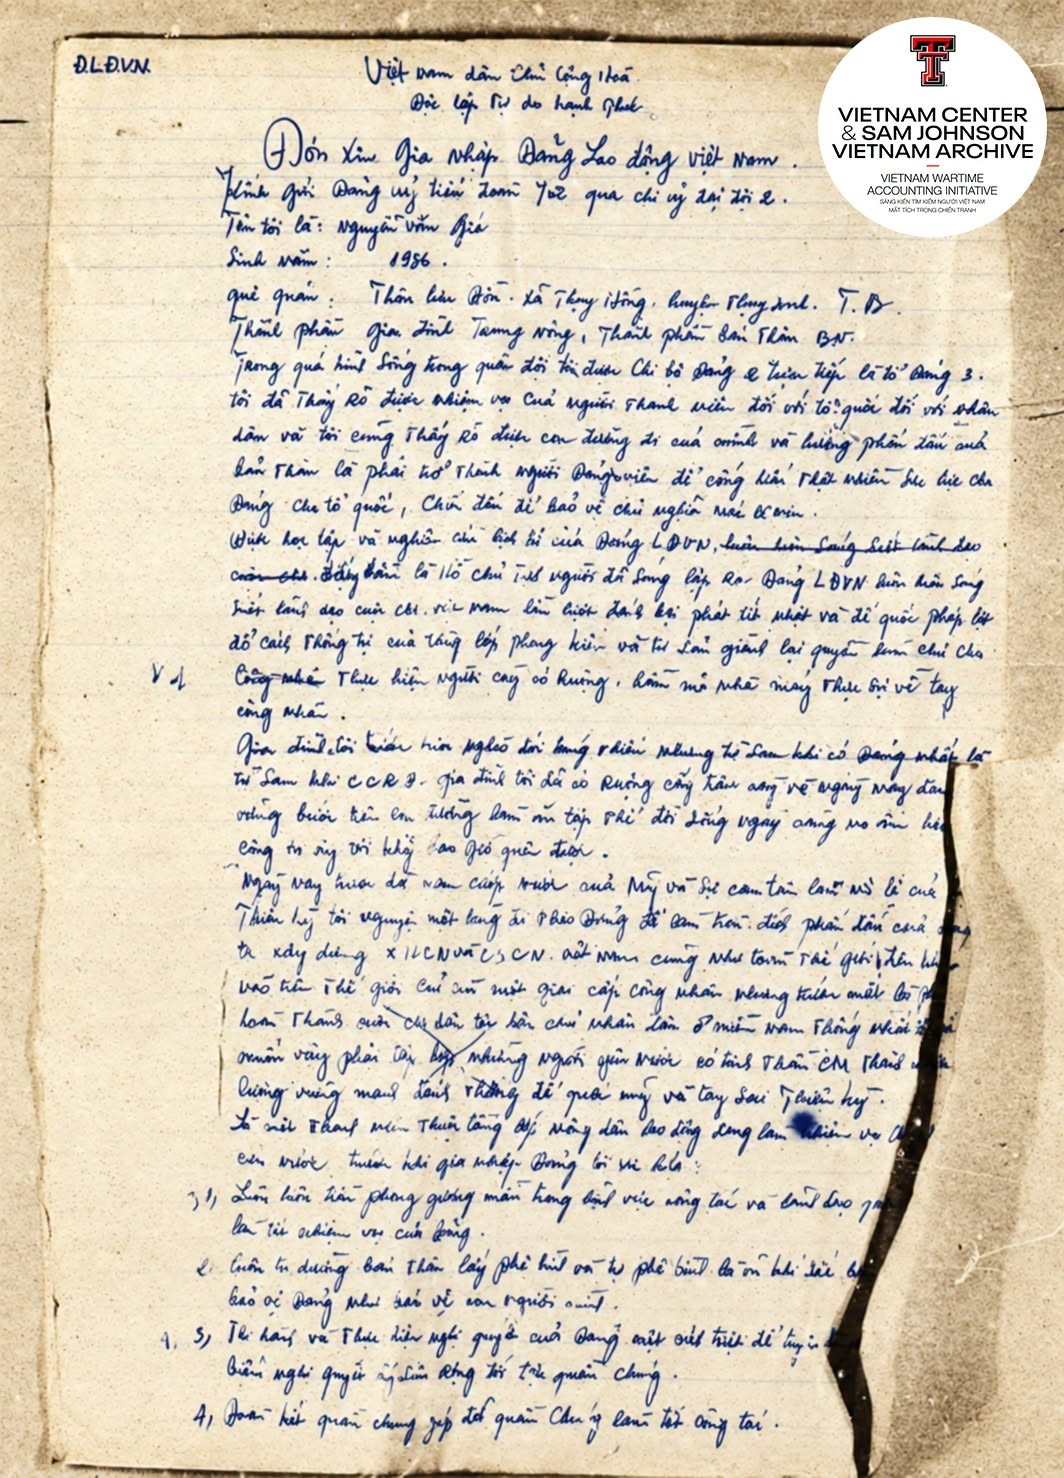 Đ.L.Đ.V.N.
VIETNAM CENTER
& SAM JOHNSON
VIETNAM ARCHIVE
VIETNAM WARTIME
ACCOUNTING INITIATIVE
SÁNG KIẾN TÌM KIẾM NGƯỜI VIỆT NAM
MẤT TÍCH TRONG CHIẾN TRANH
Việt nam dân Chủ Cộng Hoà
Độc lập Tự do hạnh Phúc
Đơn Xin Gia Nhập Đảng Lao động việt Nam.
Kính Gửi Đảng uỷ tiểu đoàn 702 qua chi uỷ đại đội 2.
Tên tôi là: Nguyễn văn Giá
Sinh năm: 1986.
quê quán: Thôn Đồn. Xã Thụy Hồng. huyện Thụy Anh. T.B.
Thành phần Gia đình Trung nông, Thành phần bản Thân BN.
Trong quá trình Sống trong quân đội tôi được Chi bộ Đảng 2 trực tiếp là tổ Đảng 3.
tôi đã Thấy Rõ được nhiệm vụ Của Người Thanh niên đối với tổ quốc đối với nhân
dân và tôi cũng Thấy Rõ được con đường đi của mình và hướng phấn đấu của
bản Thân là phải trở Thành người Đảng viên để cống hiến Thật nhiều Sức lực cho
Đảng Cho tổ quốc, Chiến đấu để bảo vệ chủ nghĩa Mác Lê nin.
Được học tập và nghiên cứu lịch sử của Đảng LĐVN, luôn luôn Sáng Suốt lãnh đạo
là Hồ chủ Tịch người đã Sáng lập Ra Đảng LĐVN luôn luôn Sáng
Suốt lãnh đạo cuộc CM. việt nam lần lượt đánh bại phát xít nhật và đế quốc pháp lật
đổ cách Thống trị của tầng lớp phong kiến và tư sản giành lại quyền làm chủ cho
Công nhân Thực hiện người cày có Ruộng, hầm mỏ nhà máy Thực Sự về tay
công nhân.
Gia đình tôi trước kia nghèo đói nhưng từ Sau khi có Đảng nhất là
từ Sau khi CCRĐ. gia đình tôi đã có Ruộng cấy trâu cày và ngày nay đang
vững bước trên con đường làm ăn tập Thể đời Sống ngày càng no ấm
công ơn ấy tôi không bao Giờ quên được.
Ngày nay trước dã tâm cướp nước của Mỹ và Sự cam tâm làm nô lệ của
Thiệu Kỳ tôi nguyện một lòng đi Theo Đảng để làm tròn đích phấn đấu của
ta xây dựng XHCN và CSCN. việt Nam cũng như toàn Thế giới
Thế giới chỉ còn một giai cấp công nhân nhưng trước mắt
hoàn Thành cuộc CM dân tộc dân chủ nhân dân ở miền nam Thống nhất
muốn vậy phải tập hợp những người yêu Nước có tinh Thần CM Thành
lượng vững mạnh đánh Thắng đế quốc mỹ và tay Sai Thiệu Kỳ.
Là một Thanh niên Thuộc tầng lớp Nông dân lao động đang làm nhiệm vụ
cứu nước, trước khi gia nhập Đảng tôi xin hứa:
1, Luôn luôn tiên phong gương mẫu trong lĩnh vực công tác và lãnh đạo
làm tốt nhiệm vụ của Đảng.
2. Luôn tu dưỡng bản Thân lấy phê bình và tự phê bình là vũ khí
bảo vệ Đảng như bảo vệ con người mình.
3, Thi hành và Thực hiện nghị quyết của Đảng một cách triệt để
nghị quyết Rộng tới quần chúng.
4, Đoàn kết quần chúng giúp đỡ quần Chúng làm tốt công tác.